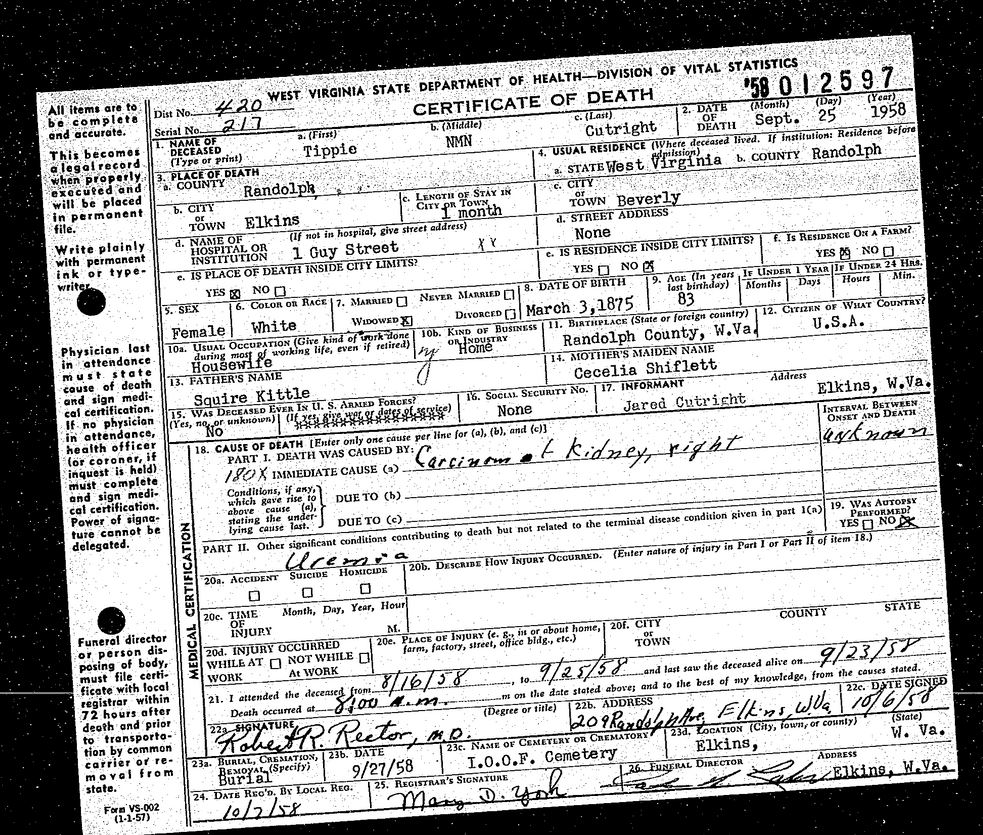 WEST VIRGINIA STATE DEPARTMENT OF HEALTH—DIVISION OF VITAL STATISTICS
CERTIFICATE OF DEATH
'58 012597
Dist No. 420
Serial No. 217
1. NAME OF DECEASED (Type or print)
a. (First) Tippie
b. (Middle) NMN
c. (Last) Cutright
2. DATE OF DEATH (Month) (Day) (Year) Sept. 25 1958
3. PLACE OF DEATH
a. COUNTY Randolph
b. CITY or TOWN Elkins
c. LENGTH OF STAY IN CITY OR TOWN 1 month
d. NAME OF HOSPITAL OR INSTITUTION (If not in hospital, give street address) 1 Guy Street XX
e. IS PLACE OF DEATH INSIDE CITY LIMITS?
YES ☒ NO ☐
4. USUAL RESIDENCE (Where deceased lived. If institution: Residence before admission)
a. STATE West Virginia b. COUNTY Randolph
c. CITY or TOWN Beverly
d. STREET ADDRESS
None
e. IS RESIDENCE INSIDE CITY LIMITS?
YES ☐ NO ☒
f. IS RESIDENCE ON A FARM?
YES ☒ NO ☐
5. SEX Female
6. COLOR OR RACE White
7. MARRIED ☐ NEVER MARRIED ☐
WIDOWED ☒ DIVORCED ☐
8. DATE OF BIRTH March 3,1875
9. AGE (In years last birthday) 83
IF UNDER 1 YEAR Months Days
IF UNDER 24 HRS. Hours Min.
10a. USUAL OCCUPATION (Give kind of work done during most of working life, even if retired) Housewife
10b. KIND OF BUSINESS OR INDUSTRY Home
11. BIRTHPLACE (State or foreign country) Randolph County, W.Va.
12. CITIZEN OF WHAT COUNTRY? U.S.A.
13. FATHER'S NAME
Squire Kittle
14. MOTHER'S MAIDEN NAME
Cecelia Shiflett
15. WAS DECEASED EVER IN U. S. ARMED FORCES?
(Yes, no, or unknown) (If yes, give war or dates of service)
No
16. SOCIAL SECURITY NO. None
17. INFORMANT Address
Jared Cutright Elkins, W.Va.
18. CAUSE OF DEATH [Enter only one cause per line for (a), (b), and (c)]
INTERVAL BETWEEN ONSET AND DEATH
PART I. DEATH WAS CAUSED BY:
180X IMMEDIATE CAUSE (a) Carcinoma of Kidney, right unknown
Conditions, if any, which gave rise to above cause (a), stating the underlying cause last.
DUE TO (b)
DUE TO (c)
PART II. Other significant conditions contributing to death but not related to the terminal disease condition given in part 1(a)
Uremia
19. WAS AUTOPSY PERFORMED?
YES ☐ NO ☒
MEDICAL CERTIFICATION
20a. ACCIDENT SUICIDE HOMICIDE
☐ ☐ ☐
20b. DESCRIBE HOW INJURY OCCURRED. (Enter nature of injury in Part I or Part II of item 18.)
20c. TIME OF INJURY Month, Day, Year, Hour M.
20d. INJURY OCCURRED
WHILE AT WORK ☐ NOT WHILE AT WORK ☐
20e. PLACE OF INJURY (e. g., in or about home, farm, factory, street, office bldg., etc.)
20f. CITY or TOWN COUNTY STATE
21. I attended the deceased from 8/16/58, to 9/25/58 and last saw the deceased alive on 9/23/58
Death occurred at 8:00 A.m. m on the date stated above; and to the best of my knowledge, from the causes stated.
22a. SIGNATURE (Degree or title)
Robert R. Rector, M.D.
22b. ADDRESS
209 Randolph Ave, Elkins, W.Va.
22c. DATE SIGNED
10/6/58
23a. BURIAL, CREMATION, REMOVAL (Specify) Burial
23b. DATE 9/27/58
23c. NAME OF CEMETERY OR CREMATORY
I.O.O.F. Cemetery
23d. LOCATION (City, town, or county) (State)
Elkins, W. Va.
24. DATE REC'D. BY LOCAL REG.
10/7/58
25. REGISTRAR'S SIGNATURE
Mary D. York
26. FUNERAL DIRECTOR ADDRESS
Elkins, W.Va.
All items are to
be complete
and accurate.
This becomes
a legal record
when properly
executed and
will be placed
in permanent
file.
Write plainly
with permanent
ink or type-
writer.
Physician last
in attendance
must state
cause of death
and sign medi-
cal certification.
If no physician
in attendance,
health officer
(or coroner, if
inquest is held)
must complete
and sign medi-
cal certification.
Power of signa-
ture cannot be
delegated.
Funeral director
or person dis-
posing of body,
must file certi-
ficate with local
registrar within
72 hours after
death and prior
to transporta-
tion by common
carrier or re-
moval from
state.
Form VS-002
(1-1-57)